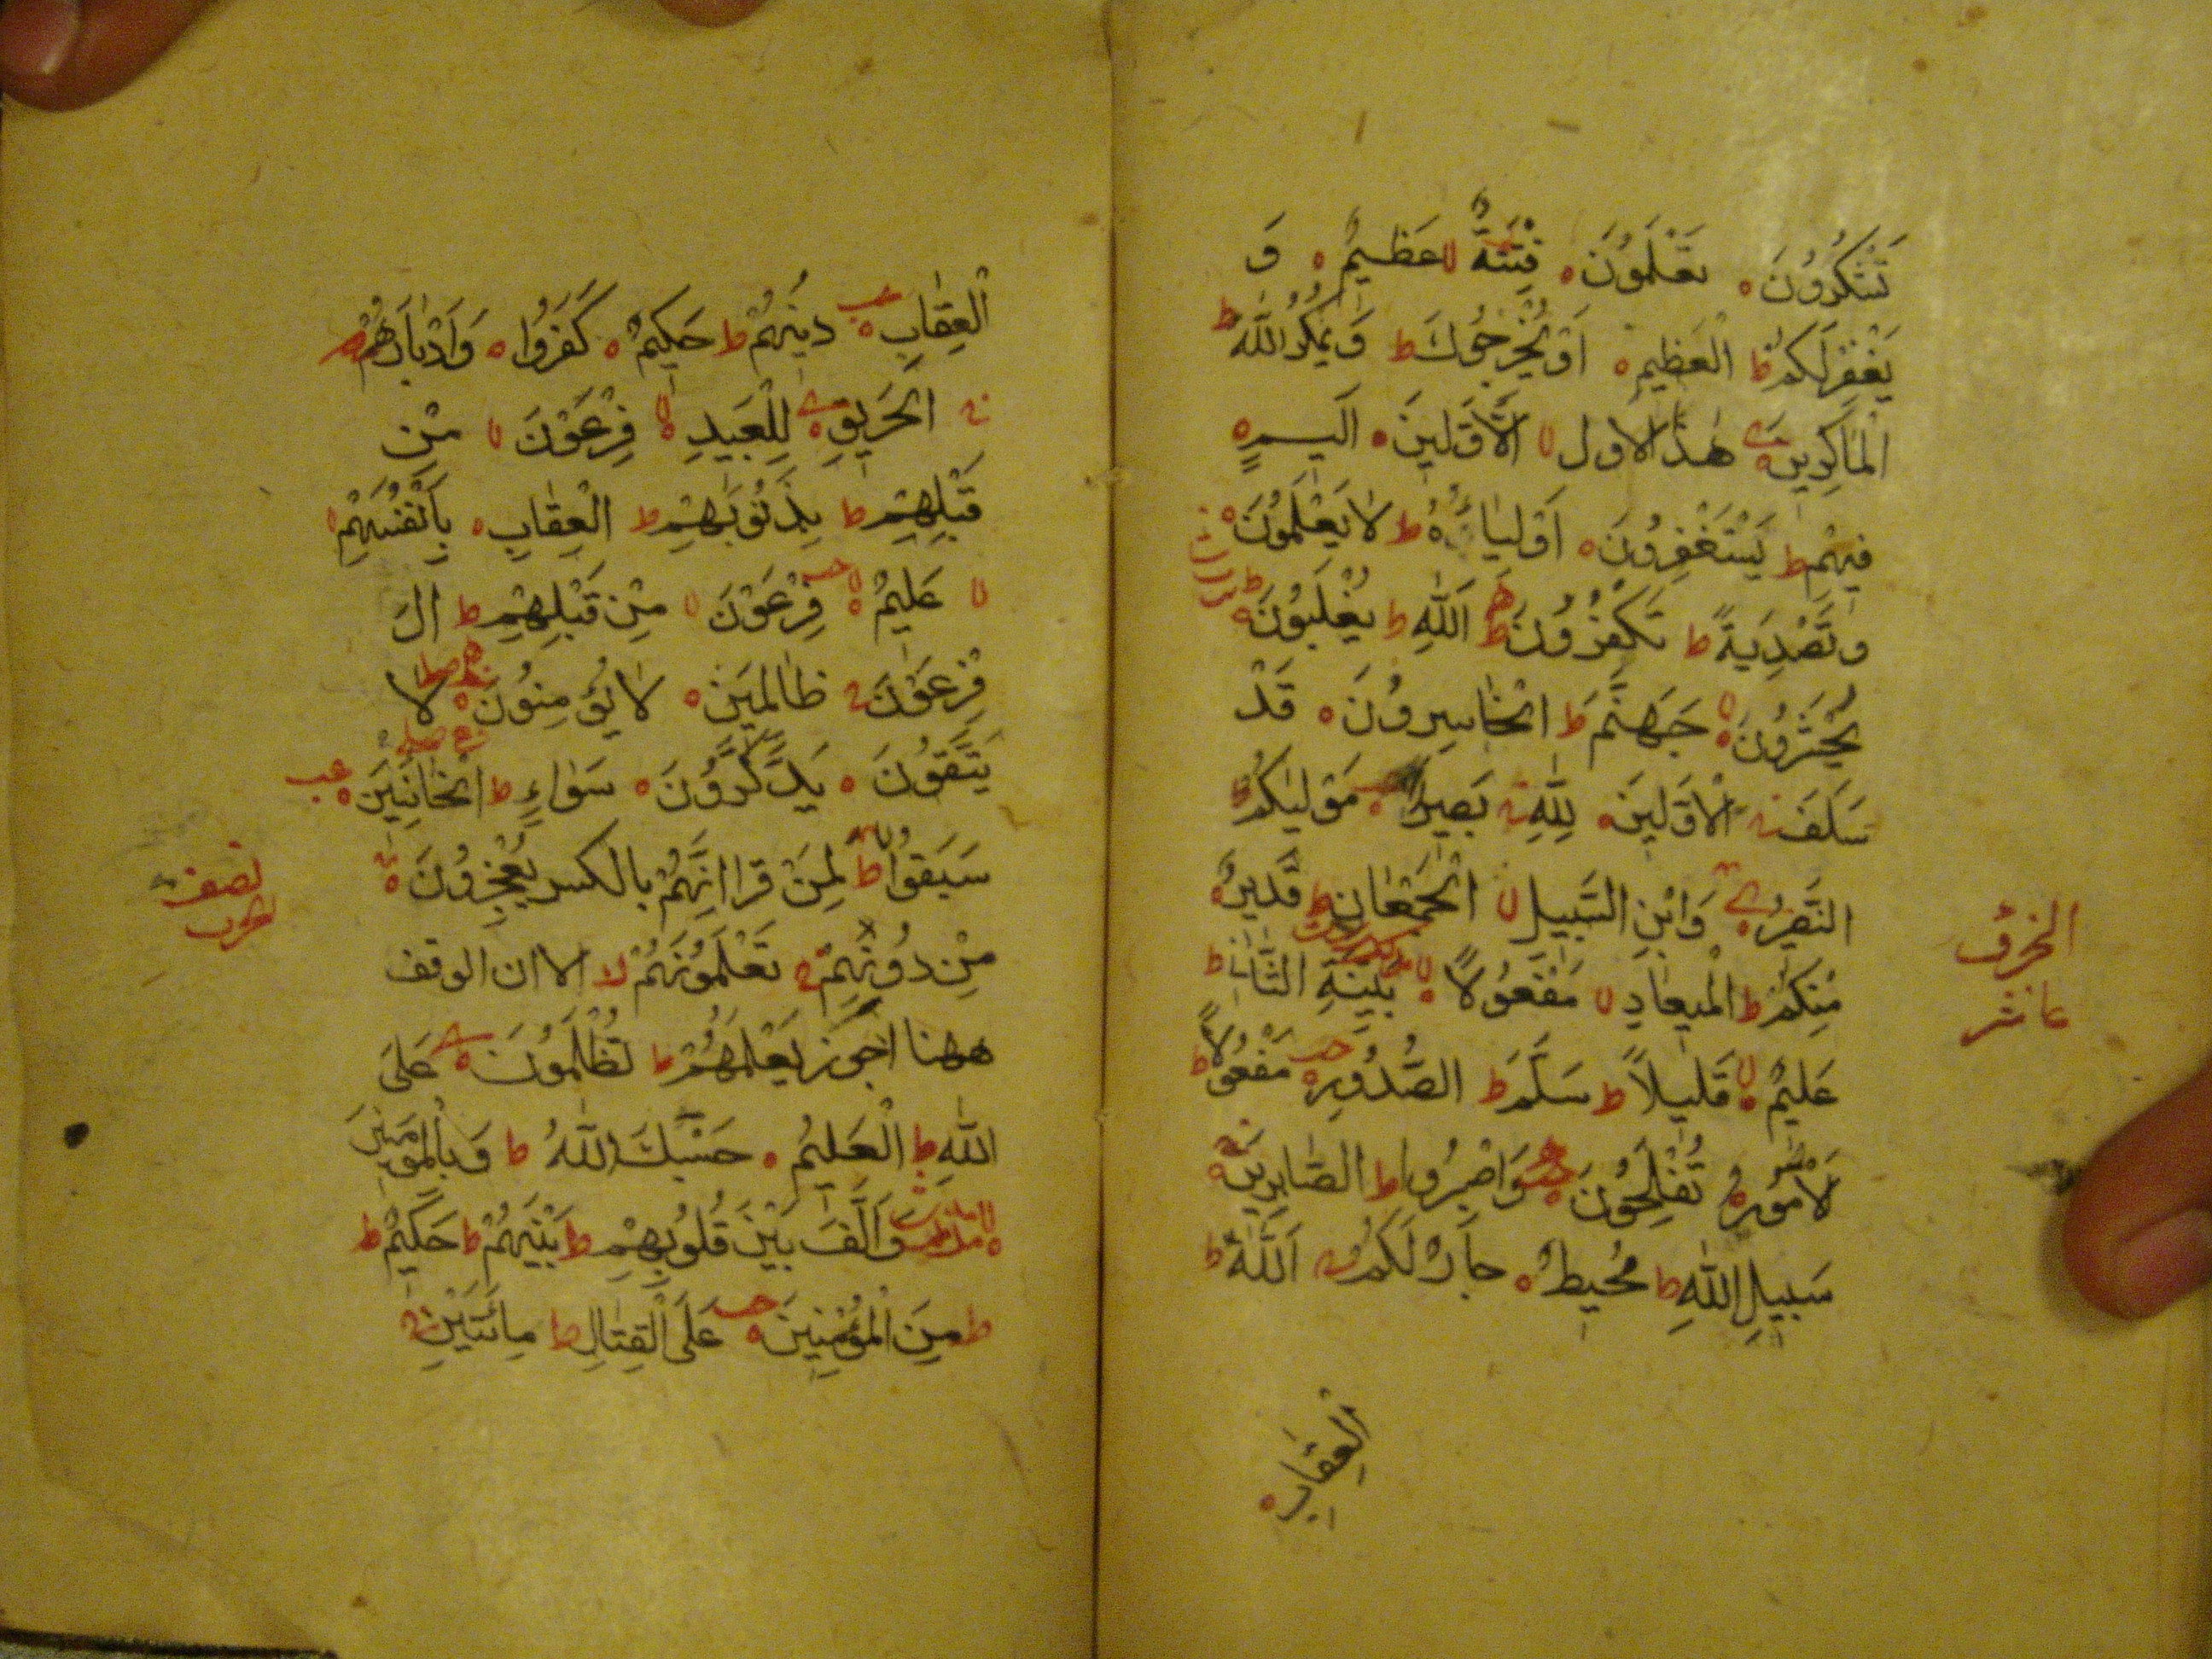 تَشْكُرُونَ ه تَعْلَمُونَ ه فِتْنَةٌ لا عَظِيمٌ ه وَ
يَغْفِرْ لَكُمْ ط الْعَظِيمِ ه اَوْ يُخْرِجُوكَ ط وَيَمْكُرُ اللّٰهُ ط
الْمَاكِرِينَ ه هٰذَا الاول لا الْاَوَّلِينَ ه اَلِيمٍ ه
فِيهِمْ ط يَسْتَغْفِرُونَ ه اَوْلِيَاءَهُ ط لَا يَعْلَمُونَ ه
وَتَصْدِيَةً ط تَكْفُرُونَ ه اللّٰهِ ط يُغْلَبُونَ ه ط
يُحْشَرُونَ ه لا جَهَنَّمَ ط الْخَاسِرُونَ ه قَدْ
سَلَفَ الْاَوَّلِينَ ه لِلّٰهِ بَصِيرٌ ه مَوْلٰيكُمْ ط
النَّصِيرُ ه وَابْنِ السَّبِيلِ لا الْجَمْعَانِ ط قَدِيرٌ ه
مِنْكُمْ ط الْمِيعَادِ لا مَفْعُولًا ه لا بَيِّنَةٍ الثَّانِ ط
عَلِيمٌ ه لا قَلِيلًا ط سَلَّمَ ط الصُّدُورِ ه مَفْعُولًا ط
الْاُمُورُ ه تُفْلِحُونَ ه وَاصْبِرُوا ط الصَّابِرِينَ ه
سَبِيلِ اللّٰهِ ط مُحِيطٌ ه جَارٌ لَكُمْ اللّٰهَ ط
العِقَابِ ه
الجزؤ
عاشر
الْعِقَابِ ه دِينُهُمْ ط حَكِيمٌ ه كَفَرُوا ه وَاَدْبَارَهُمْ
الْحَرِيقِ ه لِلْعَبِيدِ ه لا فِرْعَوْنَ لا مِنْ
قَبْلِهِمْ ط بِذُنُوبِهِمْ ط الْعِقَابِ ه بِاَنْفُسِهِمْ ه
لا عَلِيمٌ ه لا فِرْعَوْنَ لا مِنْ قَبْلِهِمْ ط الَ
فِرْعَوْنَ ظَالِمِينَ ه لَا يُؤْمِنُونَ ه صلے لَا
يَتَّقُونَ ه يَذَّكَّرُونَ ه سَوَاءٍ ط الْخَائِنِينَ ه عب
سَبَقُوا ط لِمَنْ قرا اِنَّهُمْ بالكسر يُعْجِزُونَ ه
مِنْ دُونِهِمْ تَعْلَمُونَهُمْ لا الا ان الوقف
ههنا اجوز يَعْلَمُهُمْ ط تُظْلَمُونَ ه عَلَى
اللّٰهِ ط الْعَلِيمُ ه حَسْبَكَ اللّٰهُ ط وَبِالْمُؤْمِنِينَ
وَاَلَّفَ بَيْنَ قُلُوبِهِمْ ط بَيْنَهُمْ ط حَكِيمٌ ط
ط مِنَ الْمُؤْمِنِينَ ه عَلَى الْقِتَالِ ط مِائَتَيْنِ
نصف